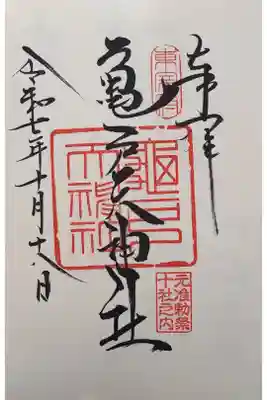 奉拝
東宰府
亀戸天神社
龜戸天神社
元准勅祭
十社之内
令和七年十月十八日